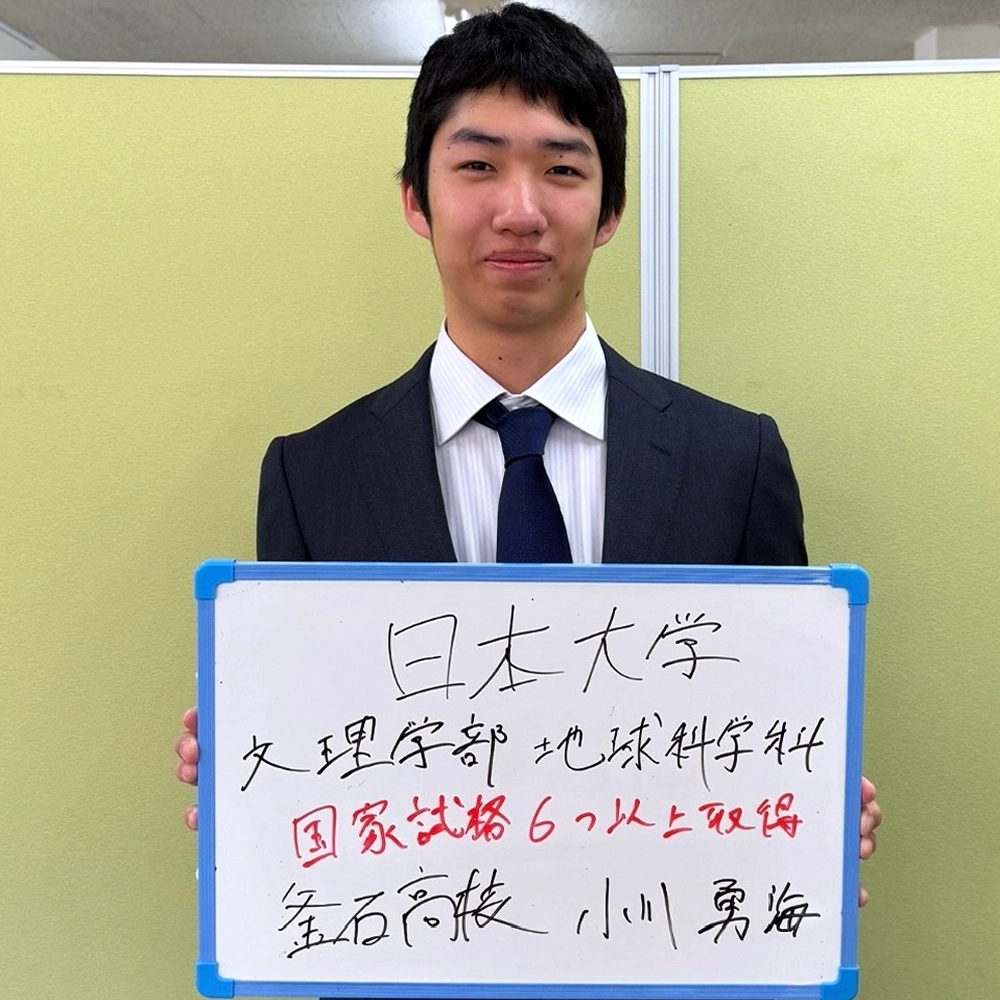 日本大学
文理学部 地球科学科
国家試格6つ以上取得
釜石高校 小川 勇海